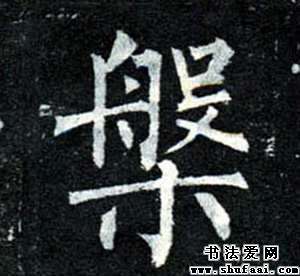 槃
书法爱网
www.shufaai.com